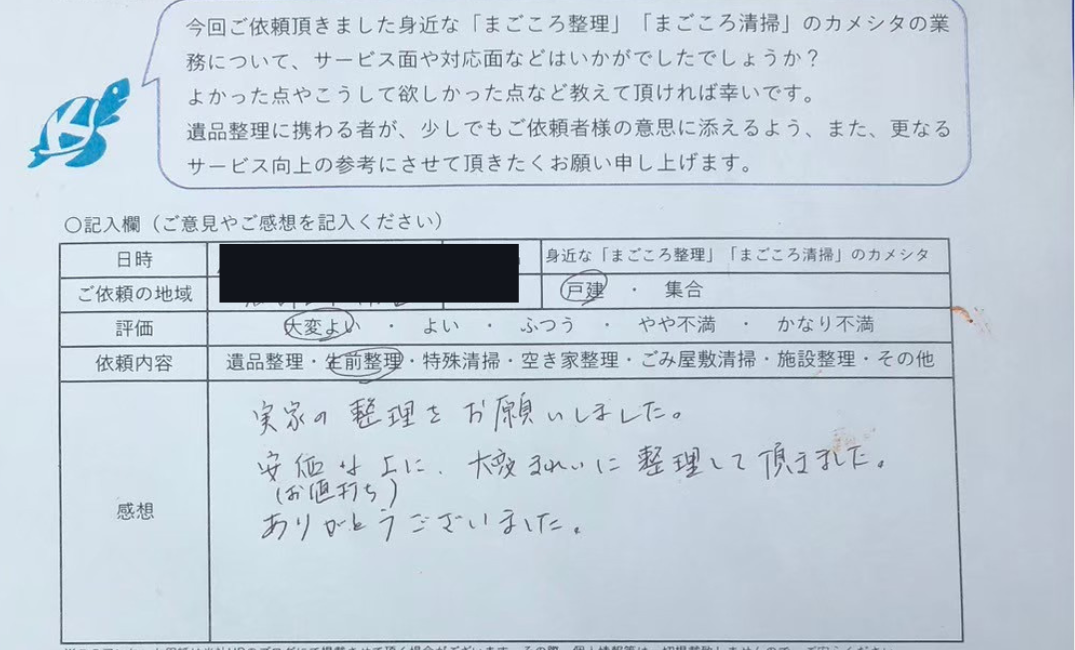 今回ご依頼頂きました身近な「まごころ整理」「まごころ清掃」のカメシタの業
務について、サービス面や対応面などはいかがでしたでしょうか？
よかった点やこうして欲しかった点など教えて頂ければ幸いです。
遺品整理に携わる者が、少しでもご依頼者様の意思に添えるよう、また、更なる
サービス向上の参考にさせて頂きたくお願い申し上げます。
〇記入欄（ご意見やご感想を記入ください）
日時 身近な「まごころ整理」「まごころ清掃」のカメシタ
ご依頼の地域 戸建 ・ 集合
評価 大変よい ・ よい ・ ふつう ・ やや不満 ・ かなり不満
依頼内容 遺品整理・生前整理・特殊清掃・空き家整理・ごみ屋敷清掃・施設整理・その他
感想
実家の整理をお願いしました。
安価な上に、大変きれいに整理して頂きました。
(お値打ち)
ありがとうございました。